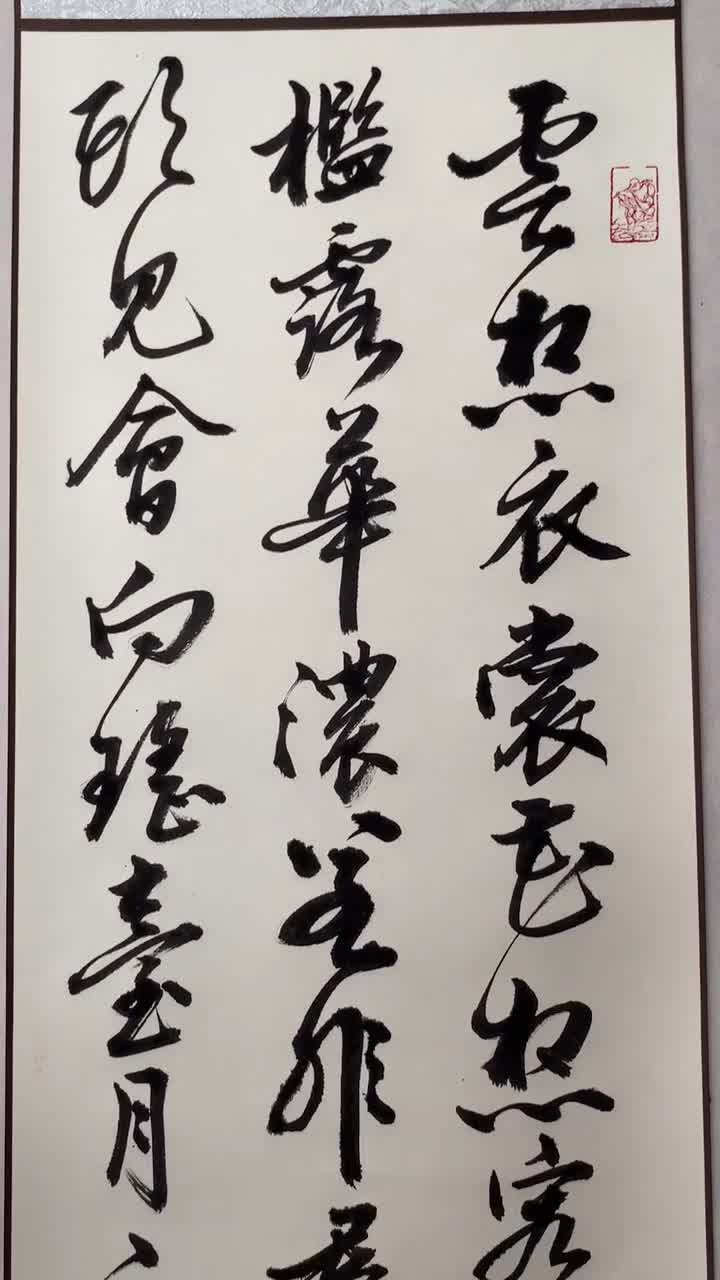 雲想衣裳花想容
檻露華濃若非群
頭見會向瑤臺月下